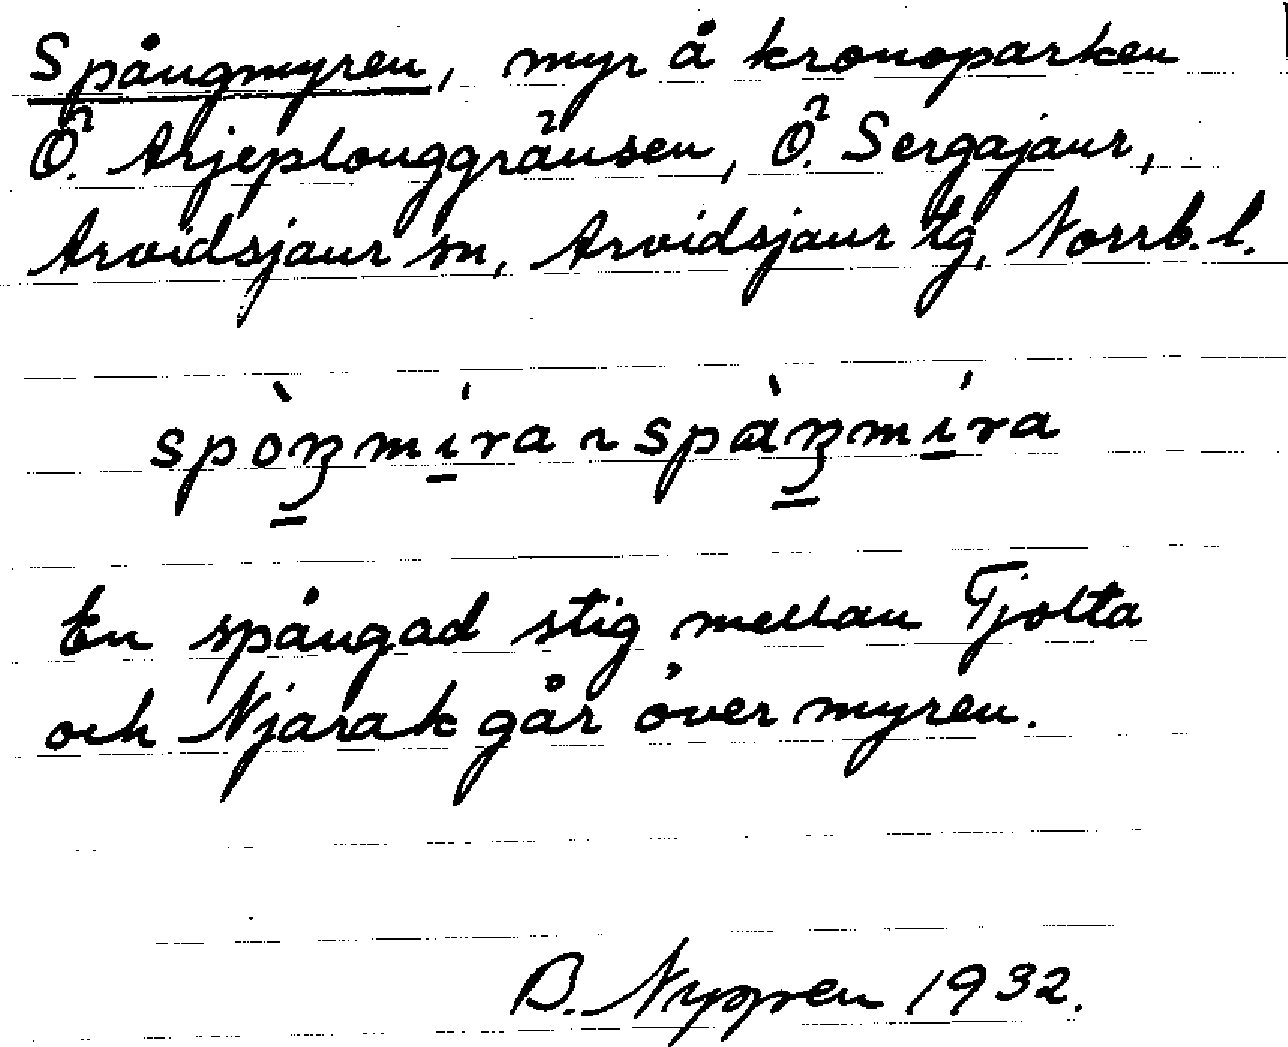 Spångmyren, myr å kronoparken
Ö. Arjeplouggränsen, Ö. Sergajaur,
Arvidsjaur sn, Arvidsjaur tg, Norrb. l.
En spångad stig mellan Tjolta
och Njarak går över myren.
B. Nyppen 1932.